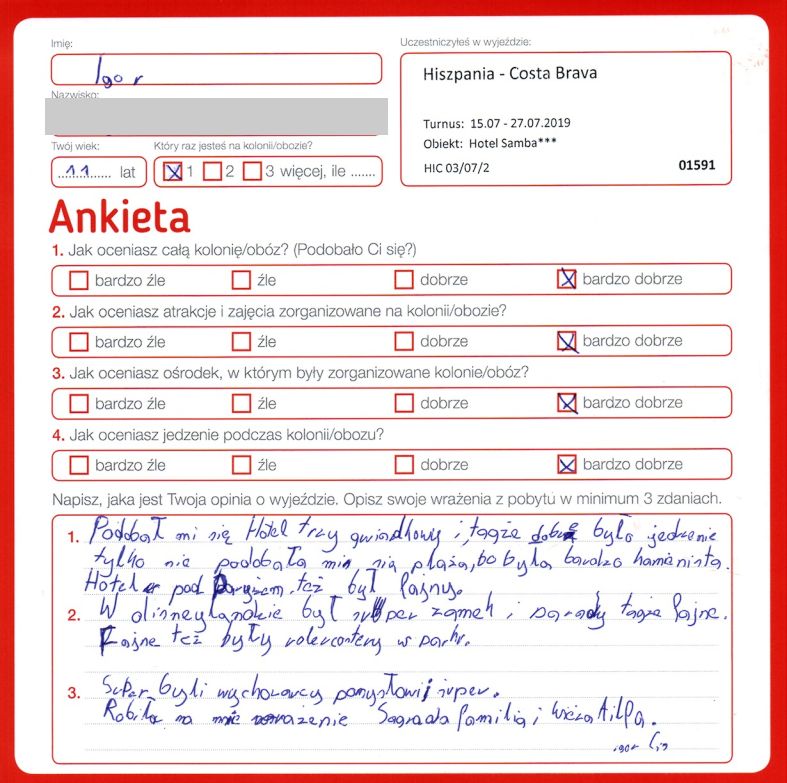 Imię:
Igor
Nazwisko:
Twój wiek:
11 lat
Który raz jesteś na kolonii/obozie?
1 2 3 więcej, ile .......
Uczestniczyłeś w wyjeździe:
Hiszpania - Costa Brava
Turnus: 15.07 - 27.07.2019
Obiekt: Hotel Samba***
HIC 03/07/2 01591
Ankieta
1. Jak oceniasz całą kolonię/obóz? (Podobało Ci się?)
bardzo źle źle dobrze bardzo dobrze
2. Jak oceniasz atrakcje i zajęcia zorganizowane na kolonii/obozie?
bardzo źle źle dobrze bardzo dobrze
3. Jak oceniasz ośrodek, w którym były zorganizowane kolonie/obóz?
bardzo źle źle dobrze bardzo dobrze
4. Jak oceniasz jedzenie podczas kolonii/obozu?
bardzo źle źle dobrze bardzo dobrze
Napisz, jaka jest Twoja opinia o wyjeździe. Opisz swoje wrażenia z pobytu w minimum 3 zdaniach.
1. Podobał mi się Hotel trzy gwiadkowy i tagże dobre było jedzenie
tylko nie podobała mi się plaża, bo była bardzo kamienista.
Hotel pod Paryżem też był fajny.
2. W disneylandie był super zamek i parady tagże fajne.
Fajne też były rolercostery w parku.
3. Super byli wychowawcy pomysłowi i super.
Robiła na mnie wrażenie Sagrada familia i wieża Aifla.
Igor